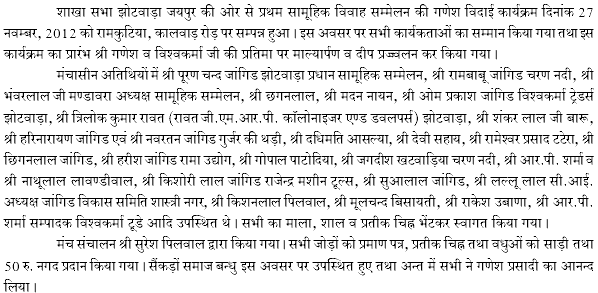 शाखा सभा झोटवाड़ा जयपुर की ओर से प्रथम सामूहिक विवाह सम्मेलन की गणेश विदाई कार्यक्रम दिनांक 27
नवम्बर, 2012 को रामकुटिया, कालवाड़ रोड़ पर सम्पन्न हुआ। इस अवसर पर सभी कार्यकताओं का सम्मान किया गया तथा इस
कार्यक्रम का प्रारंभ श्री गणेश व विश्वकर्मा जी की प्रतिमा पर माल्यार्पण व दीप प्रज्ज्वलन कर किया गया।
मंचासीन अतिथियों में श्री पूरण चन्द जांगिड झोटवाड़ा प्रधान सामूहिक सम्मेलन, श्री रामबाबू जांगिड चरण नदी, श्री
भंवरलाल जी मण्डावरा अध्यक्ष सामूहिक सम्मेलन, श्री छगनलाल, श्री मदन नायन, श्री ओम प्रकाश जांगिड विश्वकर्मा ट्रेडर्स
झोटवाड़ा, श्री त्रिलोक कुमार रावत (रावत जी.एम.आर.पी. कॉलोनाइजर एण्ड डवलपर्स) झोटवाड़ा, श्री शंकर लाल जी बारू,
श्री हरिनारायण जांगिड एवं श्री नवरतन जांगिड गुर्जर की थड़ी, श्री दधिमति आसल्या, श्री देवी सहाय, श्री रामेश्वर प्रसाद टटेरा, श्री
छिगनलाल जांगिड, श्री हरीश जांगिड रामा उद्योग, श्री गोपाल पाटोदिया, श्री जगदीश खटवाड़िया चरण नदी, श्री आर.पी. शर्मा व
श्री नाथूलाल लावण्डीवाल, श्री किशोरी लाल जांगिड राजेन्द्र मशीन टूल्स, श्री सुआलाल जांगिड, श्री लल्लू लाल सी.आई.
अध्यक्ष जांगिड विकास समिति शास्त्री नगर, श्री किशनलाल पिलवाल, श्री मूलचन्द बिसायती, श्री राकेश उबाणा, श्री आर.पी.
शर्मा सम्पादक विश्वकर्मा टूडे आदि उपस्थित थे। सभी का माला, शाल व प्रतीक चिह्न भेंटकर स्वागत किया गया।
मंच संचालन श्री सुरेश पिलवाल द्वारा किया गया। सभी जोड़ों को प्रमाण पत्र, प्रतीक चिह्न तथा वधुओं को साड़ी तथा
50 रु. नगद प्रदान किया गया। सैंकड़ों समाज बन्धु इस अवसर पर उपस्थित हुए तथा अन्त में सभी ने गणेश प्रसादी का आनन्द
लिया।